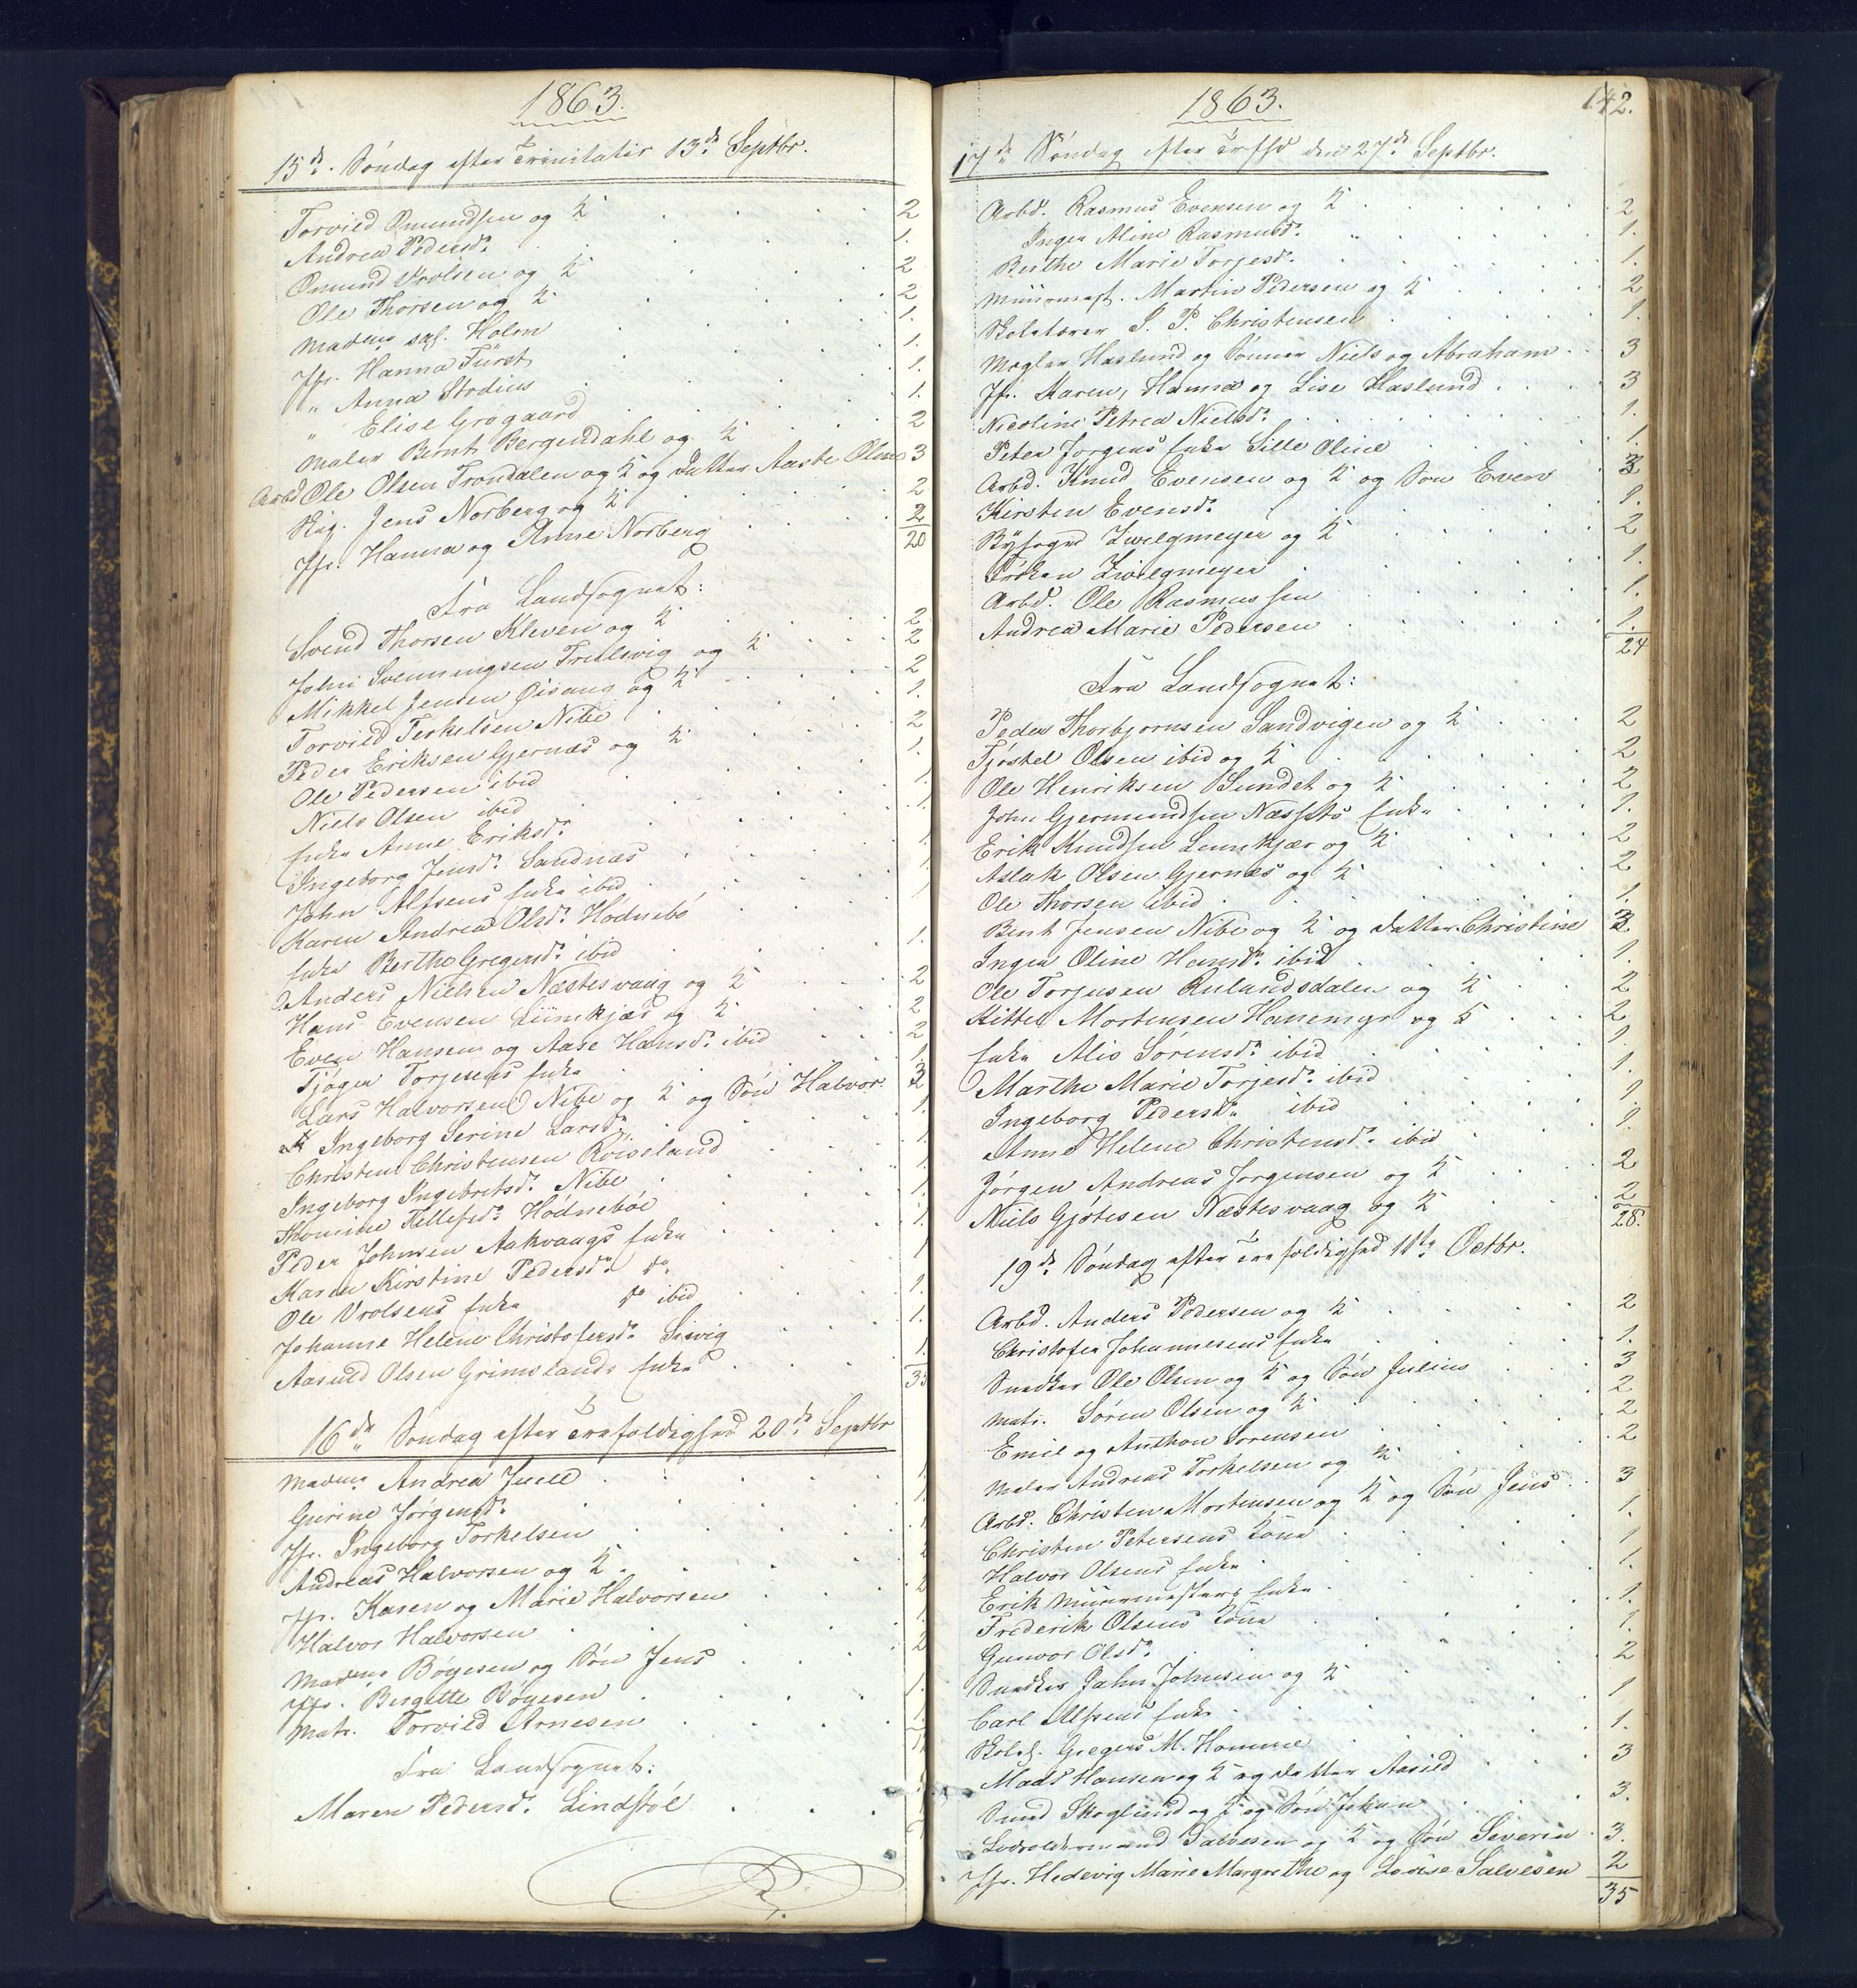 1863.
15de Søndag efter Trinitatis 13de Septbr.
Torvild Omundsen og K 2
Andrea Pedersd. 1.
Omund Vrolsen og K 2
Ole Thorsen og K 2
Madme sal. Holm 1.
Jfr. Hanna Fürst 1.
" Anna Stodius 1.
" Elise Grøgaard 1.
Maler Bernt Bergendahl og K 2
Arbd Ole Olsen Trondalen og K og Datter Aaste Oline 3
Skip. Jens Norberg og K 2
Jfr. Hanna og Anne Norberg 2
20
Fra Landsognet:
Svend Thorsen Kleven og K 2
John Svenningsen Trulsvig og K 2
Mikkel Jensen Øisang og K 2
Torvild Terkelsen Nibe 1.
Peder Eriksen Gjernæs og K 2
Ole Pedersen ibid 1.
Niels Olsen ibid 1.
Enke Anne Eriksd. 1.
Ingeborg Jensd. Sandnæs 1.
John Alfsens Enke ibid 1.
Karen Andrea Olsd. Hødnebø 1
Enke Berthe Gregersd. ibid 1.
Anders Nielsen Næstesvaag og K 2
Hans Evensen Liimkjær og K 2
Even Hansen og Aase Hansd. ibid 2
Tjøger Torjesens Enke 1.
Lars Halvorsen Nibe og K og Søn Halvor. 3
Ingeborg Serine Larsd. 1.
Christen Christensen Røiseland 1.
Ingeborg Ingebretsd. Nibe 1.
Thomine Tellefsd. Hødnebøe 1.
Peder Johnsen Aakvaags Enke 1.
Karen Kirstine Pedersd. do 1
Ole Vrolsens Enke do ibid 1.
Johanne Helene Christofersd. Sivig 1.
Aasuld Olsen Grimslands Enke 1.
35
16de Søndag efter Trefoldighed 20de Septbr
Madme Andrea Juell 1
Gurine Jørgensd. 1
Jfr. Ingeborg Torkelsen 1
Andreas Halvorsen og K. 2
Jfr. Karen og Marie Halvorsen 2
Halvor Halvorsen 1
Madme Bøyesen og Søn Jens 2
Jfr. Birgitte Bøyesen 1.
Matr. Torvild Arnesen 1
Fra Landsognet:
Maren Pedersd. Lindstøl 1
1863.
142.
17de Søndag efter Trefhd den 27de Septbr.
Arbd. Rasmus Evensen og K 2
Inger Aline Rasmusd. 1.
Berthe Marie Torjesd. 1.
Muurmest. Martin Pedersen og K 2
Skolelærer S. P. Christensen 1.
Mægler Haslund og Sønner Niels og Abraham 3
Jfr. Karen, Hanna og Lise Haslund 3
Nicoline Petrea Nielsd. 1.
Peter Jørgens Enke Sille Oline 1.
Arbd. Knud Evensen og K og Søn Even 3
Kirsten Evensd. 1.
Byfoged Zwilgmeyer og K 2
Frøken Zwilgmeyer 1.
Arbd. Ole Rasmussen 1.
Andrea Marie Pedersen 1.
24
Fra Landsognet:
Peder Thorbjørnsen Sandvigen og K 2
Tjøstel Olsen ibid og K 2
Ole Henriksen Sundet og K 2
John Gjermundsen Næssets Enke 1.
Erik Knudsen Limkjær og K 2
Aslak Olsen Gjernæs og K 2
Ole Thorsen ibid 1.
Bent Jensen Nibe og K og Datter Christine 3
Inger Oline Hansd. ibid 1.
Ole Torjusen Aulandsdalen og K 2
Kittel Mortensen Hanemyr og K 2
Enke Alis Sørensd. ibid 1.
Marthe Marie Torjesd. ibid 1.
Ingeborg Pedersd. ibid 1.
Anne Helene Christensd. ibid 1.
Jørgen Andreas Jørgensen og K 2
Niels Gjøtesen Næstesvaag og K 2
28.
19de Søndag efter Trefoldighed 11te Octbr.
Arbd. Anders Pedersen og K 2
Christofer Johannesens Enke 1.
Snedker Ole Olsen og K og Søn Julius 3
Matr. Søren Olsen og K 2
Emil og Anthon Sørensen 2
Maler Andreas Torkelsen og K 2
Arbd. Christen Mortensen og K og Søn Jens 3
Christen Petersens Kone 1.
Halvor Olsens Enke 1
Erik Muurmesters Enke 1.
Frederik Olsens Kone 1.
Gunvor Olsd. 1.
Snedker John Johnsen og K 2
Carl Alfsens Enke 1
Skolel. Gregers M. Homme 1.
Mads Hansen og K og Datter Aasild 3
Smed Skoglund og K og Søn Johan 3.
Lodsoldermand Salvesen og K og Søn Severin 3.
Jfr. Hedevig Marie Margrethe og Lovise Salvesen 2
35